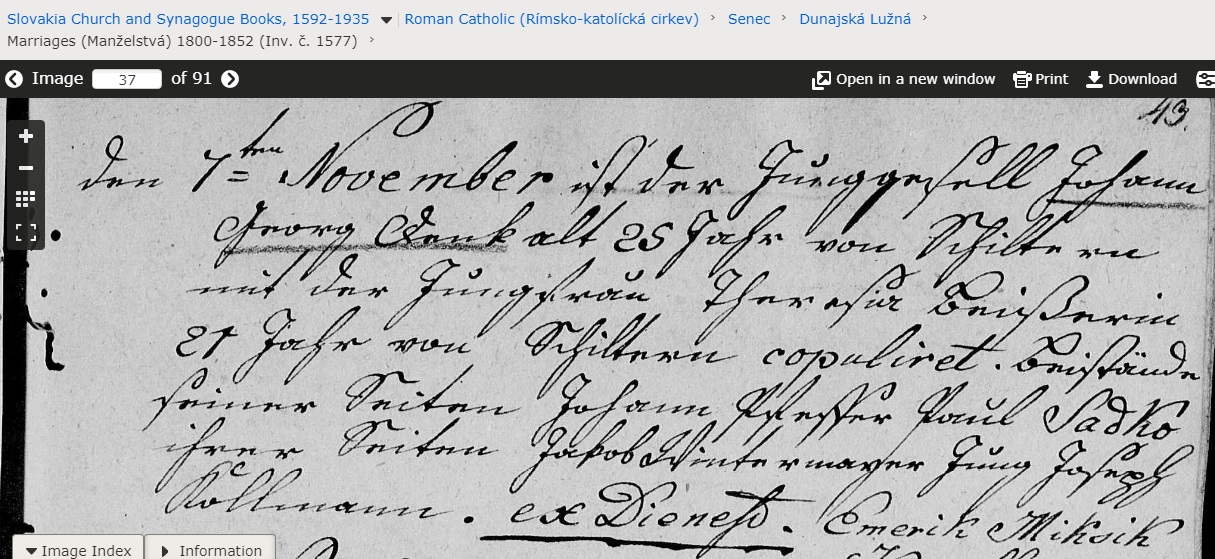 Slovakia Church and Synagogue Books, 1592-1935 Roman Catholic (Rímsko-katolícká cirkev) › Senec › Dunajská Lužná ›
Marriages (Manželstvá) 1800-1852 (Inv. č. 1577) ›
Image 37 of 91 Open in a new window Print Download
43.
den 7ten November ist der Junggesell Johann
Georg Denk alt 25 Jahr von Schiltern
mit der Jungfrau Theresia Beißerin
21 Jahr von Schiltern copuliret. Beistände
seiner Seiten Johann Pfeffer Paul Sadko
ihrer Seiten Jakob Wintermayer Jung Joseph
Kollmann. ex Dienesd. Emerik Miksik
Image Index Information